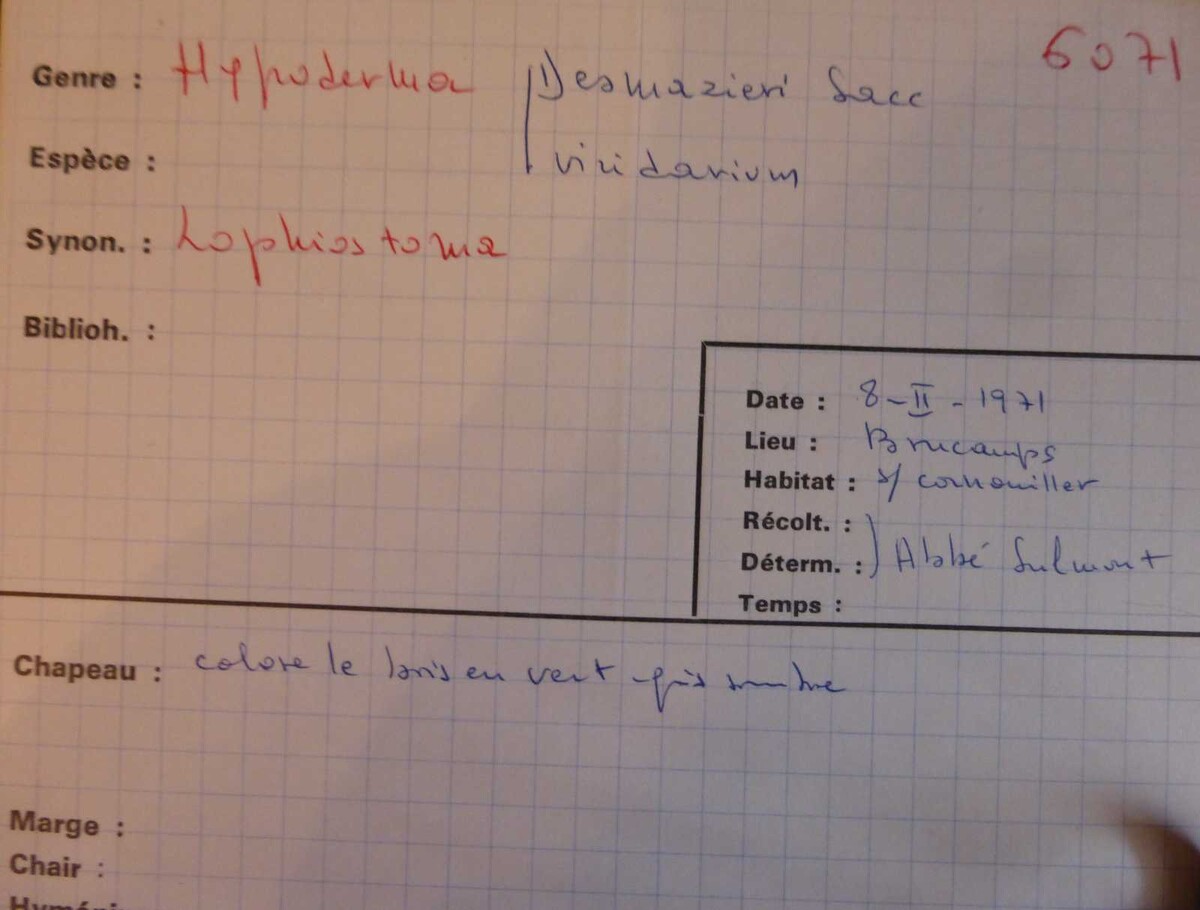 6071
Genre : Hypoderma Desmazieri Sacc
Espèce : viridarium
Synon. : Lophiostoma
Biblioh. :
Date : 8-II-1971
Lieu : Brucamps
Habitat : s/ cornouiller
Récolt. :
Déterm. : Abbé Sulmont
Temps :
Chapeau : colore le bois en vert-gris sombre
Marge :
Chair :